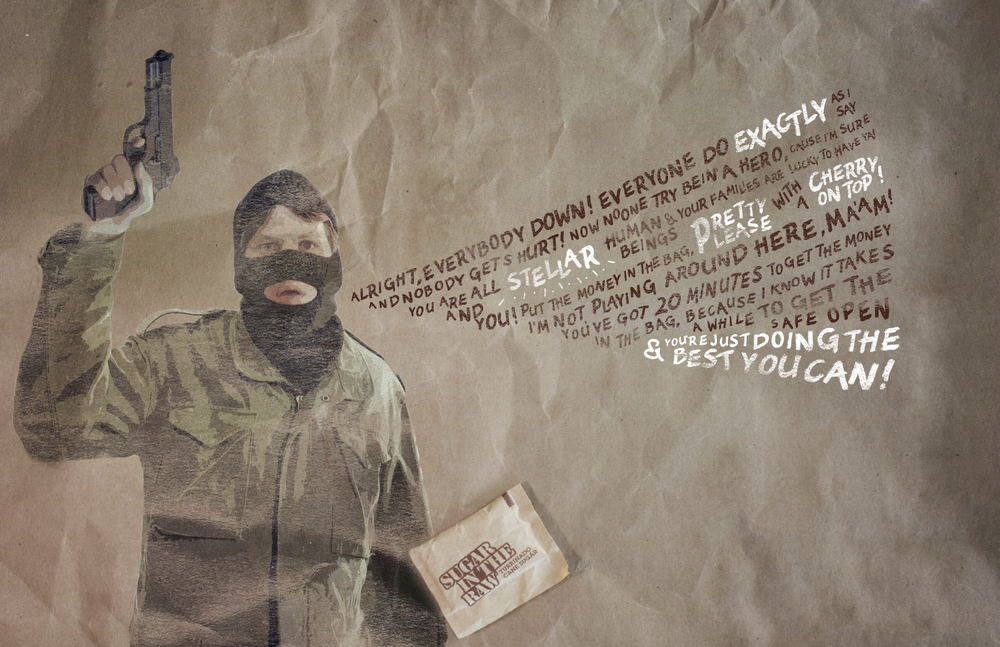 ALRIGHT, EVERYBODY DOWN! EVERYONE DO EXACTLY AS I SAY
AND NOBODY GETS HURT! NOW NOONE TRY BEIN' A HERO, CAUSE I'M SURE
YOU ARE ALL STELLAR HUMAN BEINGS & YOUR FAMILIES ARE LUCKY TO HAVE YA!
AND YOU! PUT THE MONEY IN THE BAG, PRETTY PLEASE WITH A CHERRY ON TOP!
I'M NOT PLAYING AROUND HERE, MA'AM!
YOU'VE GOT 20 MINUTES TO GET THE MONEY
IN THE BAG, BECAUSE I KNOW IT TAKES
A WHILE TO GET THE
SAFE OPEN
& YOU'RE JUST DOING THE
BEST YOU CAN!
SUGAR
IN THE
RAW
TURBINADO
CANE SUGAR